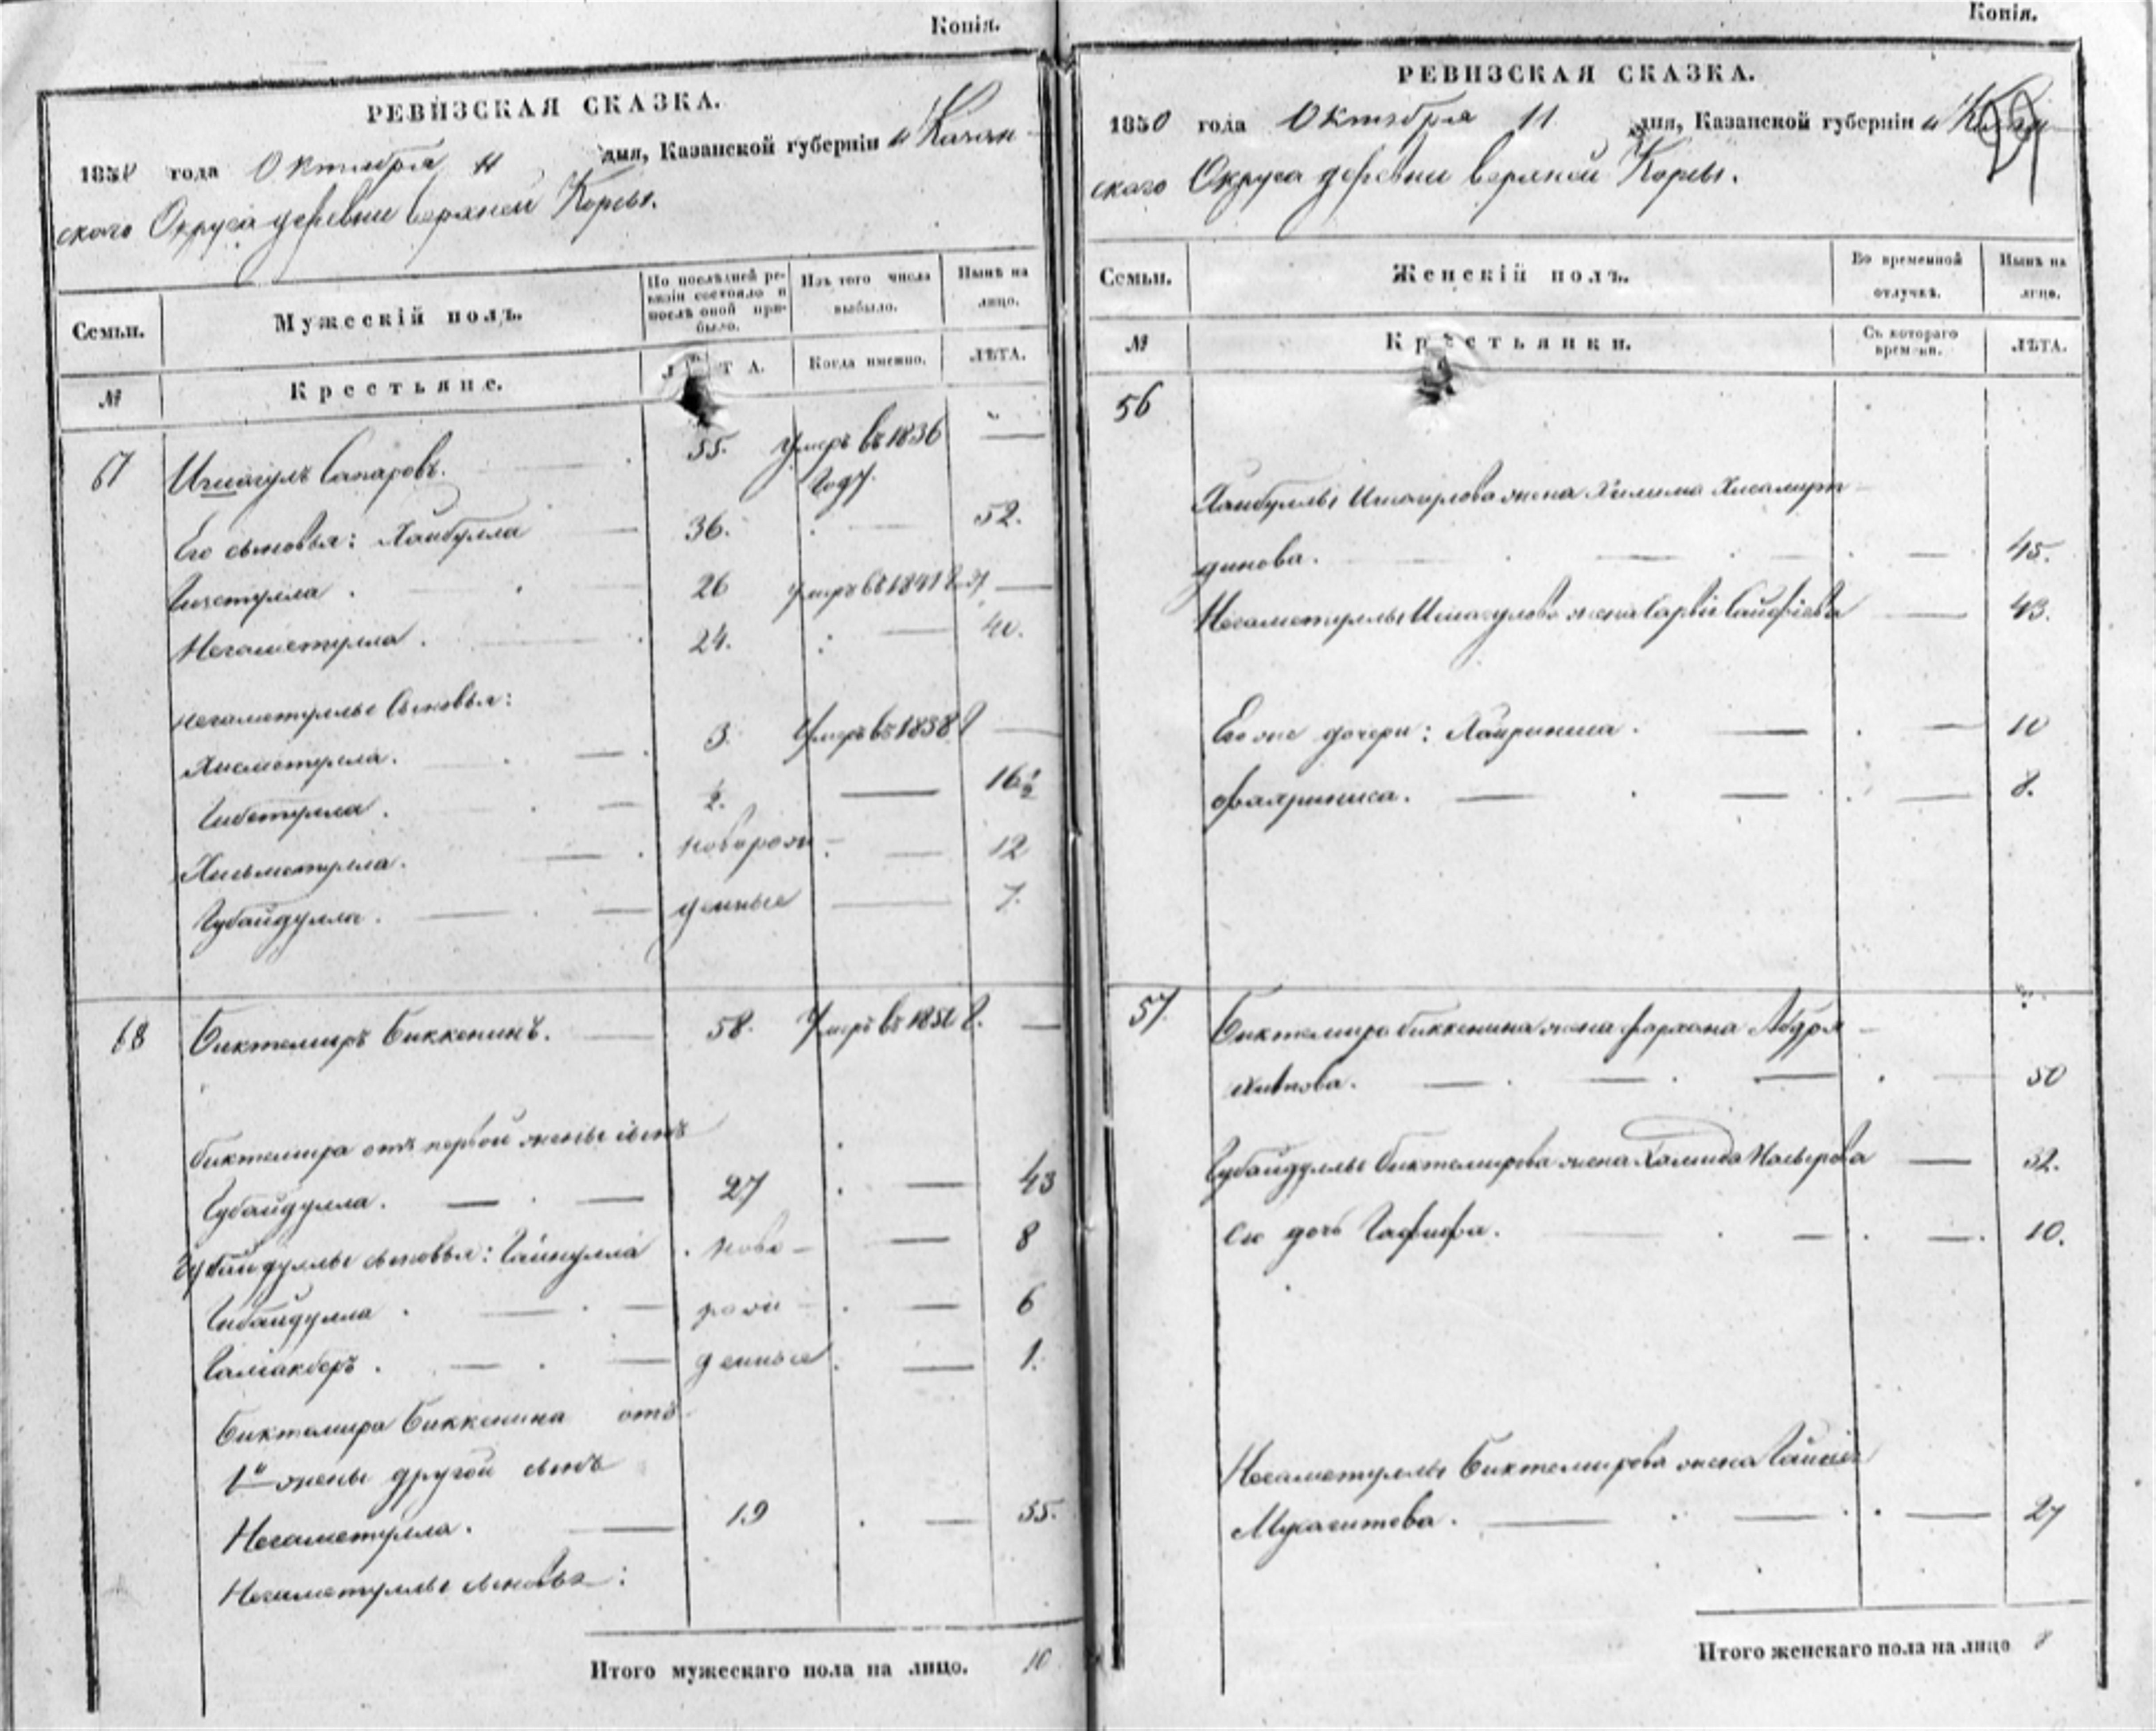 Копія.
РЕВИЗСКАЯ СКАЗКА.
1850 года Октября 11 дня, Казанской губерніи и Казан-
скаго Округа деревни верхней Корсы.
Семьи.
Мужескій полъ.
По послѣдней ре-
визіи состояло и
послѣ оной при-
было.
Изъ того числа
выбыло.
Нынѣ на
лицо.
№
Крестьяне.
ЛѢТА.
Когда именно.
ЛѢТА.
67 Ишмагулъ Сапаровъ. 55. умеръ въ 1836 —
году.
Его сыновья: Хаибулла 36. 52.
26 умеръ въ 1841 —
Негаметулла. 24. 40.
Негаметуллы сыновья:
Хисметулла. 3. умеръ въ 1838 г —
Гибетулла. ½. — 16½
новорож- — 12
Губайдулла. — денные — 7.
68 Биктемиръ Биккенинъ. 58. Умеръ въ 1850 г. —
Биктемира отъ первой жены сынъ
Губайдулла. — 27 — 43
Губайдуллы сыновья: Гайнулла ново- — 8
Гибайдулла — рож- — 6
Галіакберъ. — денные — 1.
Биктемира Биккенина отъ
1й жены другой сынъ
Негаметулла. — 19 — 35.
Негаметуллы сыновья:
Итого мужескаго пола на лицо. 10
Копія.
РЕВИЗСКАЯ СКАЗКА.
1850 года Октября 11 дня, Казанской губерніи и Казан-
скаго Округа деревни верхней Корсы.
Семьи.
Женскій полъ.
Во временной
отлучкѣ.
Нынѣ на
лицо.
№
Крестьянки.
Съ котораго
времени.
ЛѢТА.
56
Хаибуллы Ишмагулова жена Халима Хисамут-
динова. — 45.
Негаметуллы Ишмагулова жена Сарвія Сайфіева — 43.
Его же дочери: Хайриниса. — 10
Фахриниса. — 8.
57 Биктемира Биккенина жена Фархана Абдра-
— 50
Губайдуллы Биктемирова жена Халида Насырова — 32.
Ея дочь Гафифа. — 10.
Негаметуллы Биктемирова жена
— 27
Итого женскаго пола на лицо 8